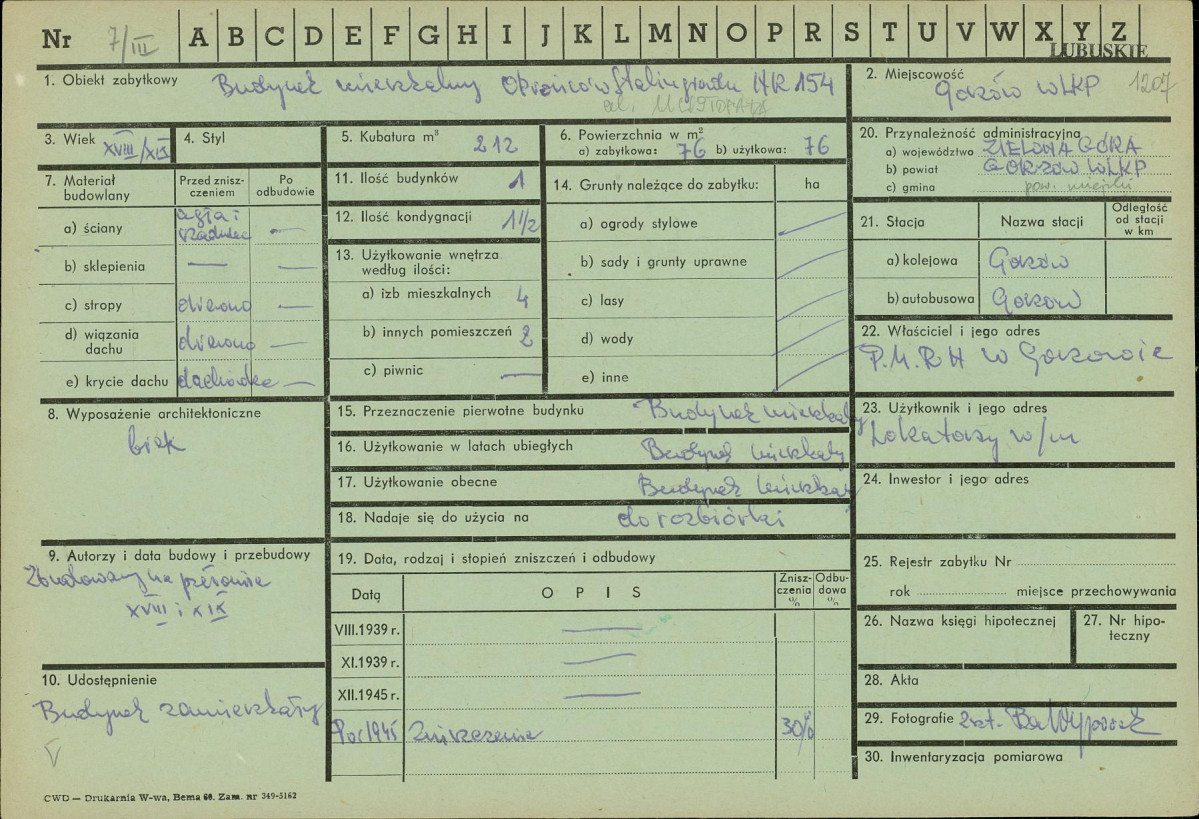 Nr 7/III A B C D E F G H I J K L M N O P R S T U V W X Y Z
LUBUSKIE
1. Obiekt zabytkowy Budynek mieszkalny Obrońców Stalingradu NR 154
ul.
2. Miejscowość
Gorzów WLKP 1207
3. Wiek XVIII/XIX
4. Styl
5. Kubatura m³ 212
6. Powierzchnia w m²
a) zabytkowa: 76 b) użytkowa: 76
20. Przynależność administracyjna
a) województwo ZIELONA GÓRA
b) powiat GORZÓW WLKP
c) gmina pow. miejski
7. Materiał budowlany
Przed znisz-
czeniem
Po
odbudowie
a) ściany
cegła i
—
b) sklepienia — —
c) stropy drewno —
d) wiązania
dachu drewno —
e) krycie dachu dachówka —
11. Ilość budynków 1
12. Ilość kondygnacji 1 1/2
13. Użytkowanie wnętrza
według ilości:
a) izb mieszkalnych 4
b) innych pomieszczeń 2
c) piwnic —
14. Grunty należące do zabytku: ha
a) ogrody stylowe
b) sady i grunty uprawne
c) lasy
d) wody
e) inne
21. Stacja Nazwa stacji
Odległość
od stacji
w km
a) kolejowa Gorzów
b) autobusowa Gorzów
22. Właściciel i jego adres
P.M.R.N w Gorzowie
8. Wyposażenie architektoniczne
brak
15. Przeznaczenie pierwotne budynku Budynek mieszkalny
16. Użytkowanie w latach ubiegłych Budynek mieszkalny
17. Użytkowanie obecne Budynek mieszkalny
18. Nadaje się do użycia na do rozbiórki
23. Użytkownik i jego adres
Lokatorzy w/m
24. Inwestor i jego adres
9. Autorzy i data budowy i przebudowy
Zbudowany na przełomie
XVIII i XIX
19. Data, rodzaj i stopień zniszczeń i odbudowy
Datą OPIS
Znisz-
czenia
%
Odbu-
dowa
%
VIII.1939 r. —
XI.1939 r. —
XII.1945 r. —
Po r 1945 Zniszczenie 30%
25. Rejestr zabytku Nr
rok miejsce przechowywania
26. Nazwa księgi hipotecznej
27. Nr hipo-
teczny
10. Udostępnienie
Budynek zamieszkały
V
28. Akta
29. Fotografie 2 szt.
30. Inwentaryzacja pomiarowa
CWD — Drukarnia W-wa, Bema 60. Zam. nr 349-5162